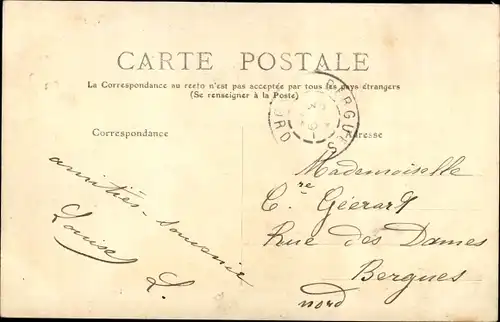 CARTE POSTALE
La Correspondance au recto n'est pas acceptée par tous les pays étrangers
(Se renseigner à la Poste)
BERGUES
NORD
Correspondance
Adresse
amitiés - souvenir
Louise L.
Mademoiselle
C.re Géerart
Rue des Dames
Bergues
nord